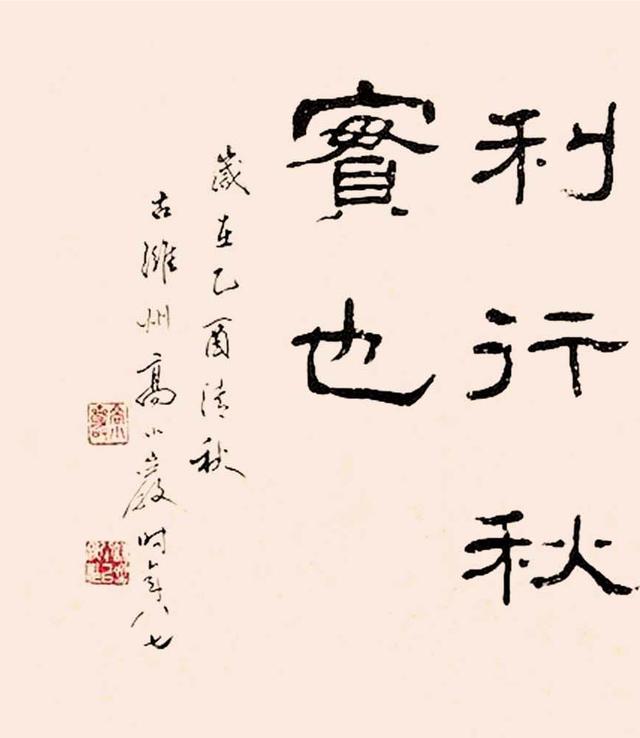 利行秋
實也
歲在乙酉清秋
古潍州高小巖时年八七